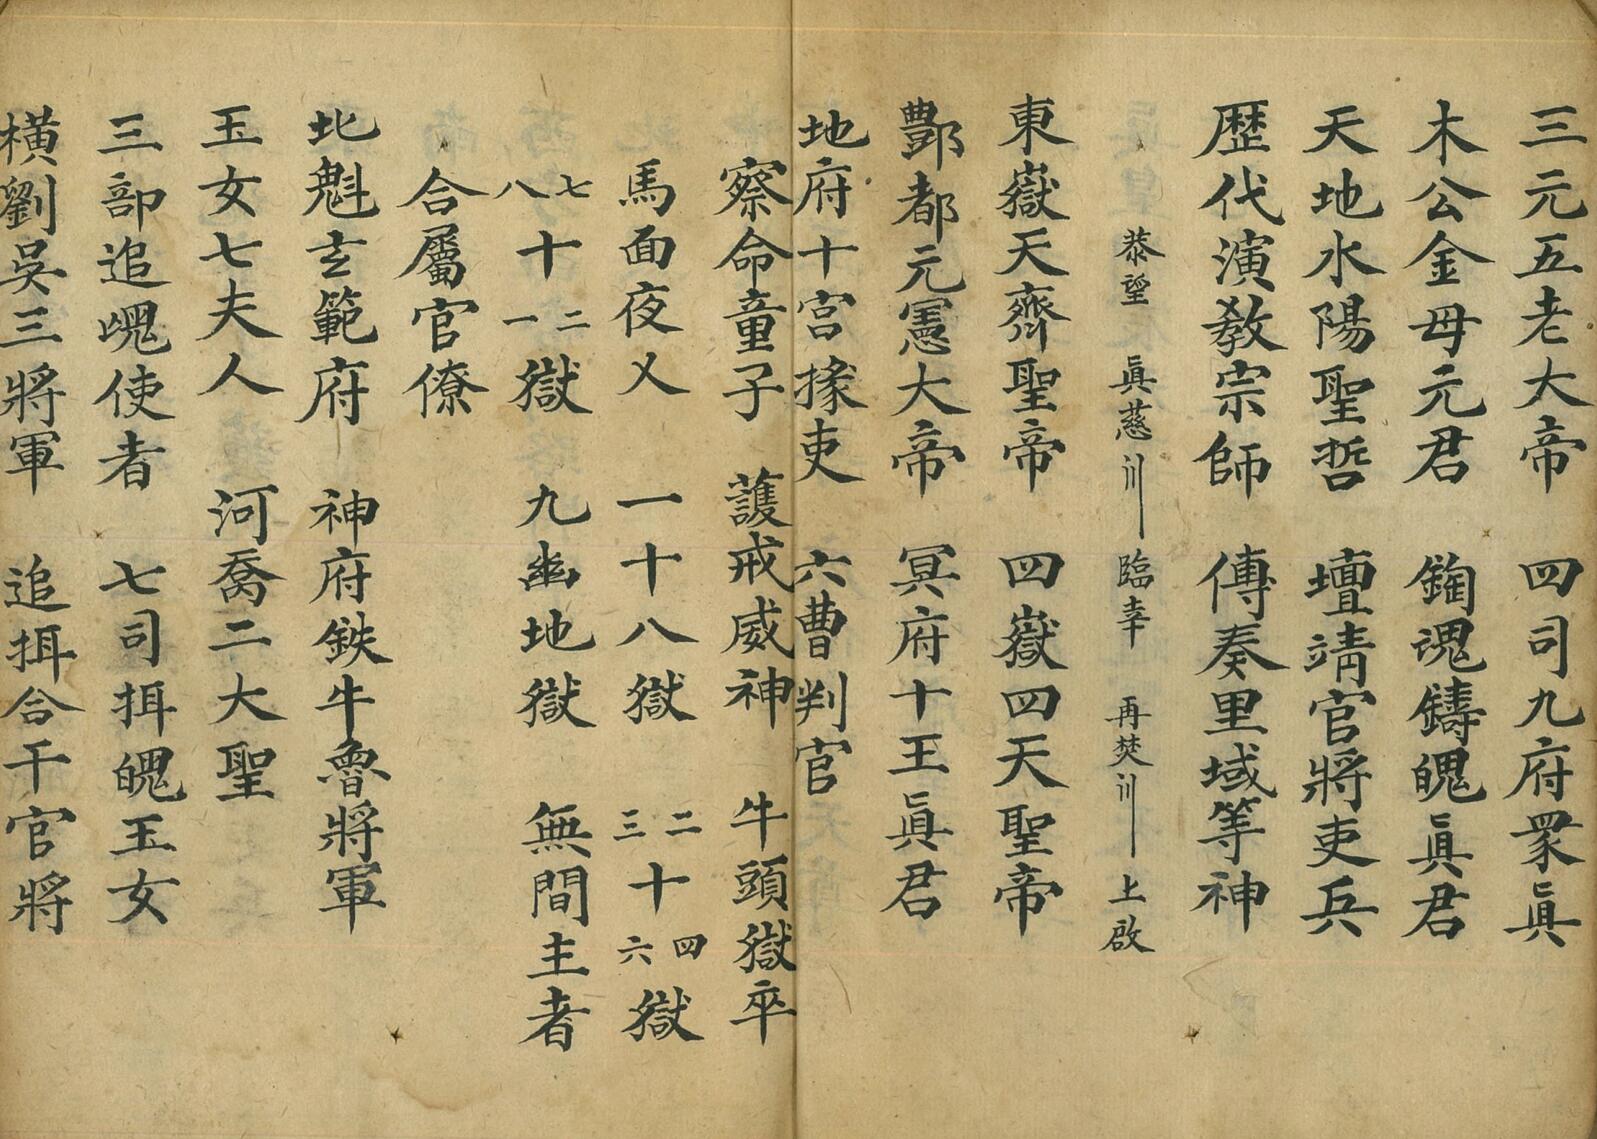 三元五老大帝　四司九府衆眞
木公金母元君　鍧魂鑄魄眞君
天地水陽聖哲　壇靖官將吏兵
歷代演敎宗師　傳奏里域等神
恭望　眞慈〢丨臨幸　再焚〢丨上啟
東嶽天齊聖帝　四嶽四天聖帝
酆都元憲大帝　冥府十王眞君
地府十宮掾吏　六曹判官
察命童子　護戒威神　牛頭獄卒
馬面夜乂　一十八獄　二三十四六獄
七八十二一獄　九幽地獄　無間主者
合屬官僚
北魁玄範府　神府鉄牛魯將軍
玉女七夫人　河喬二大聖
三部追魂使者　七司拘魄玉女
橫劉吳三將軍　追拘合干官將